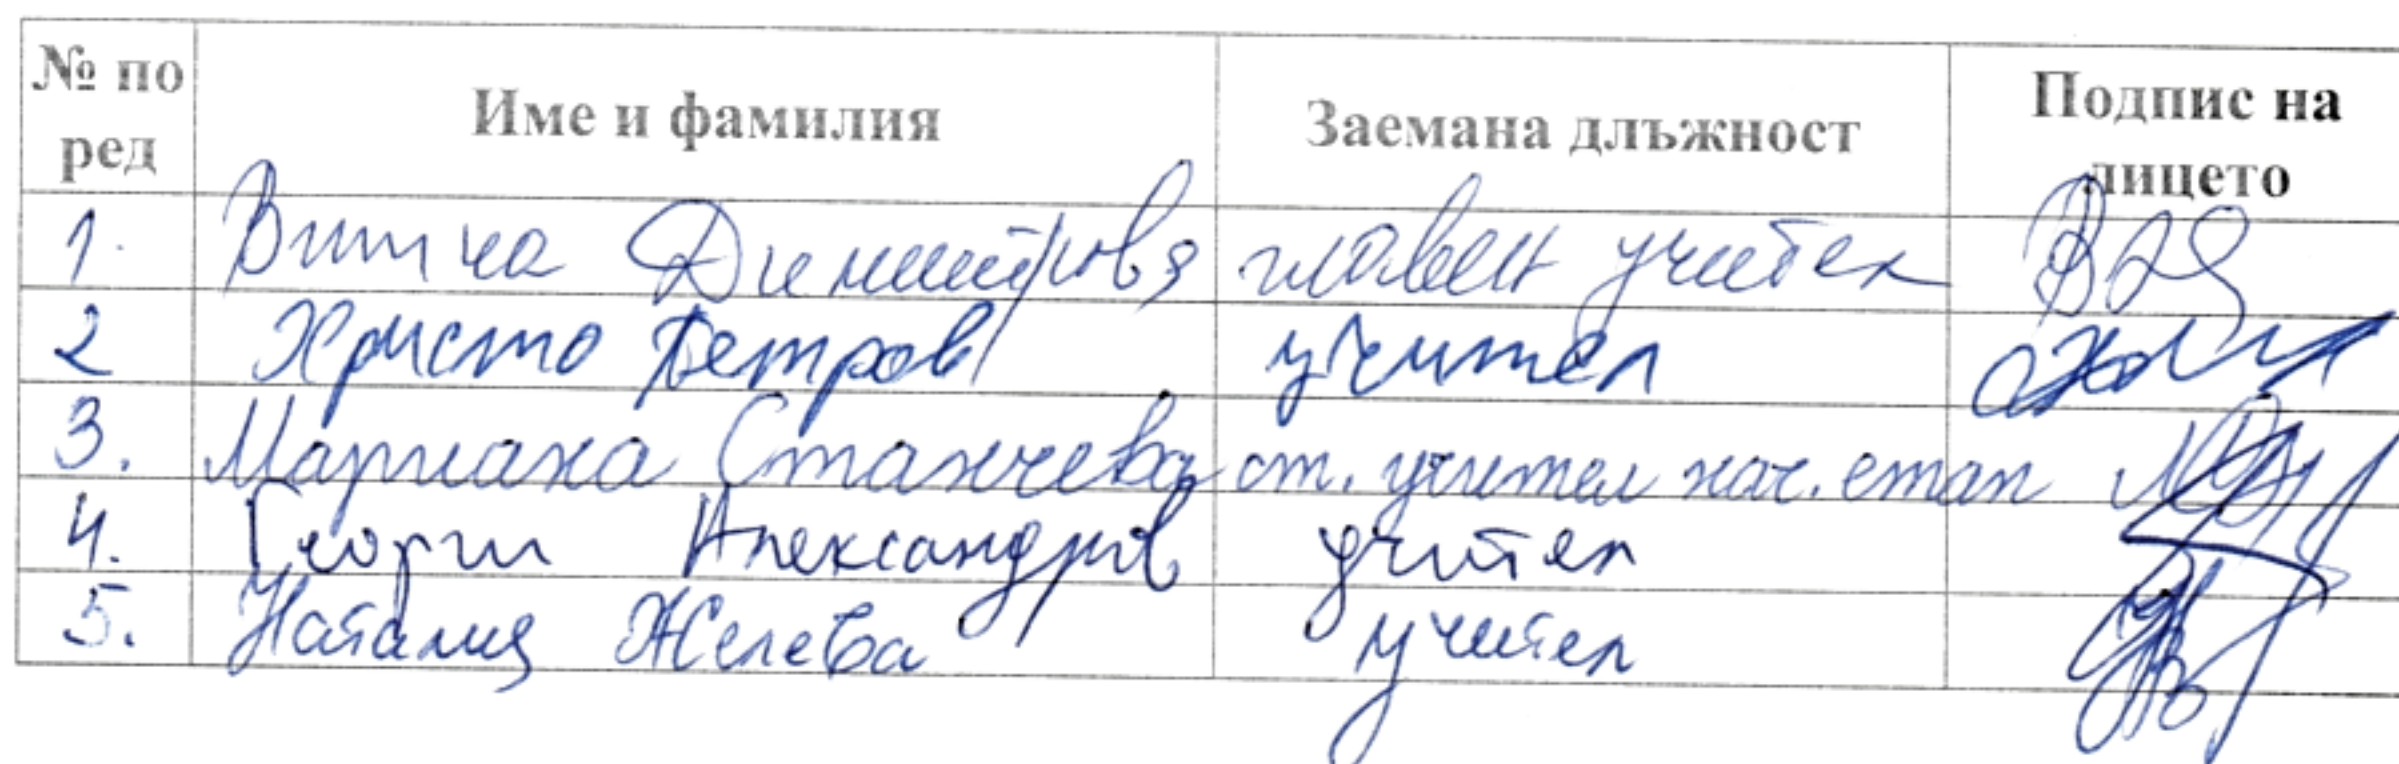 № по ред Име и фамилия Заемана длъжност Подпис на лицето
1. Димитрова главен учител
2 Христо Петров учител
3. Мариана Станчева ст. учител нач. етап
4. Георги Александров учител
5. Наталия Желева учител